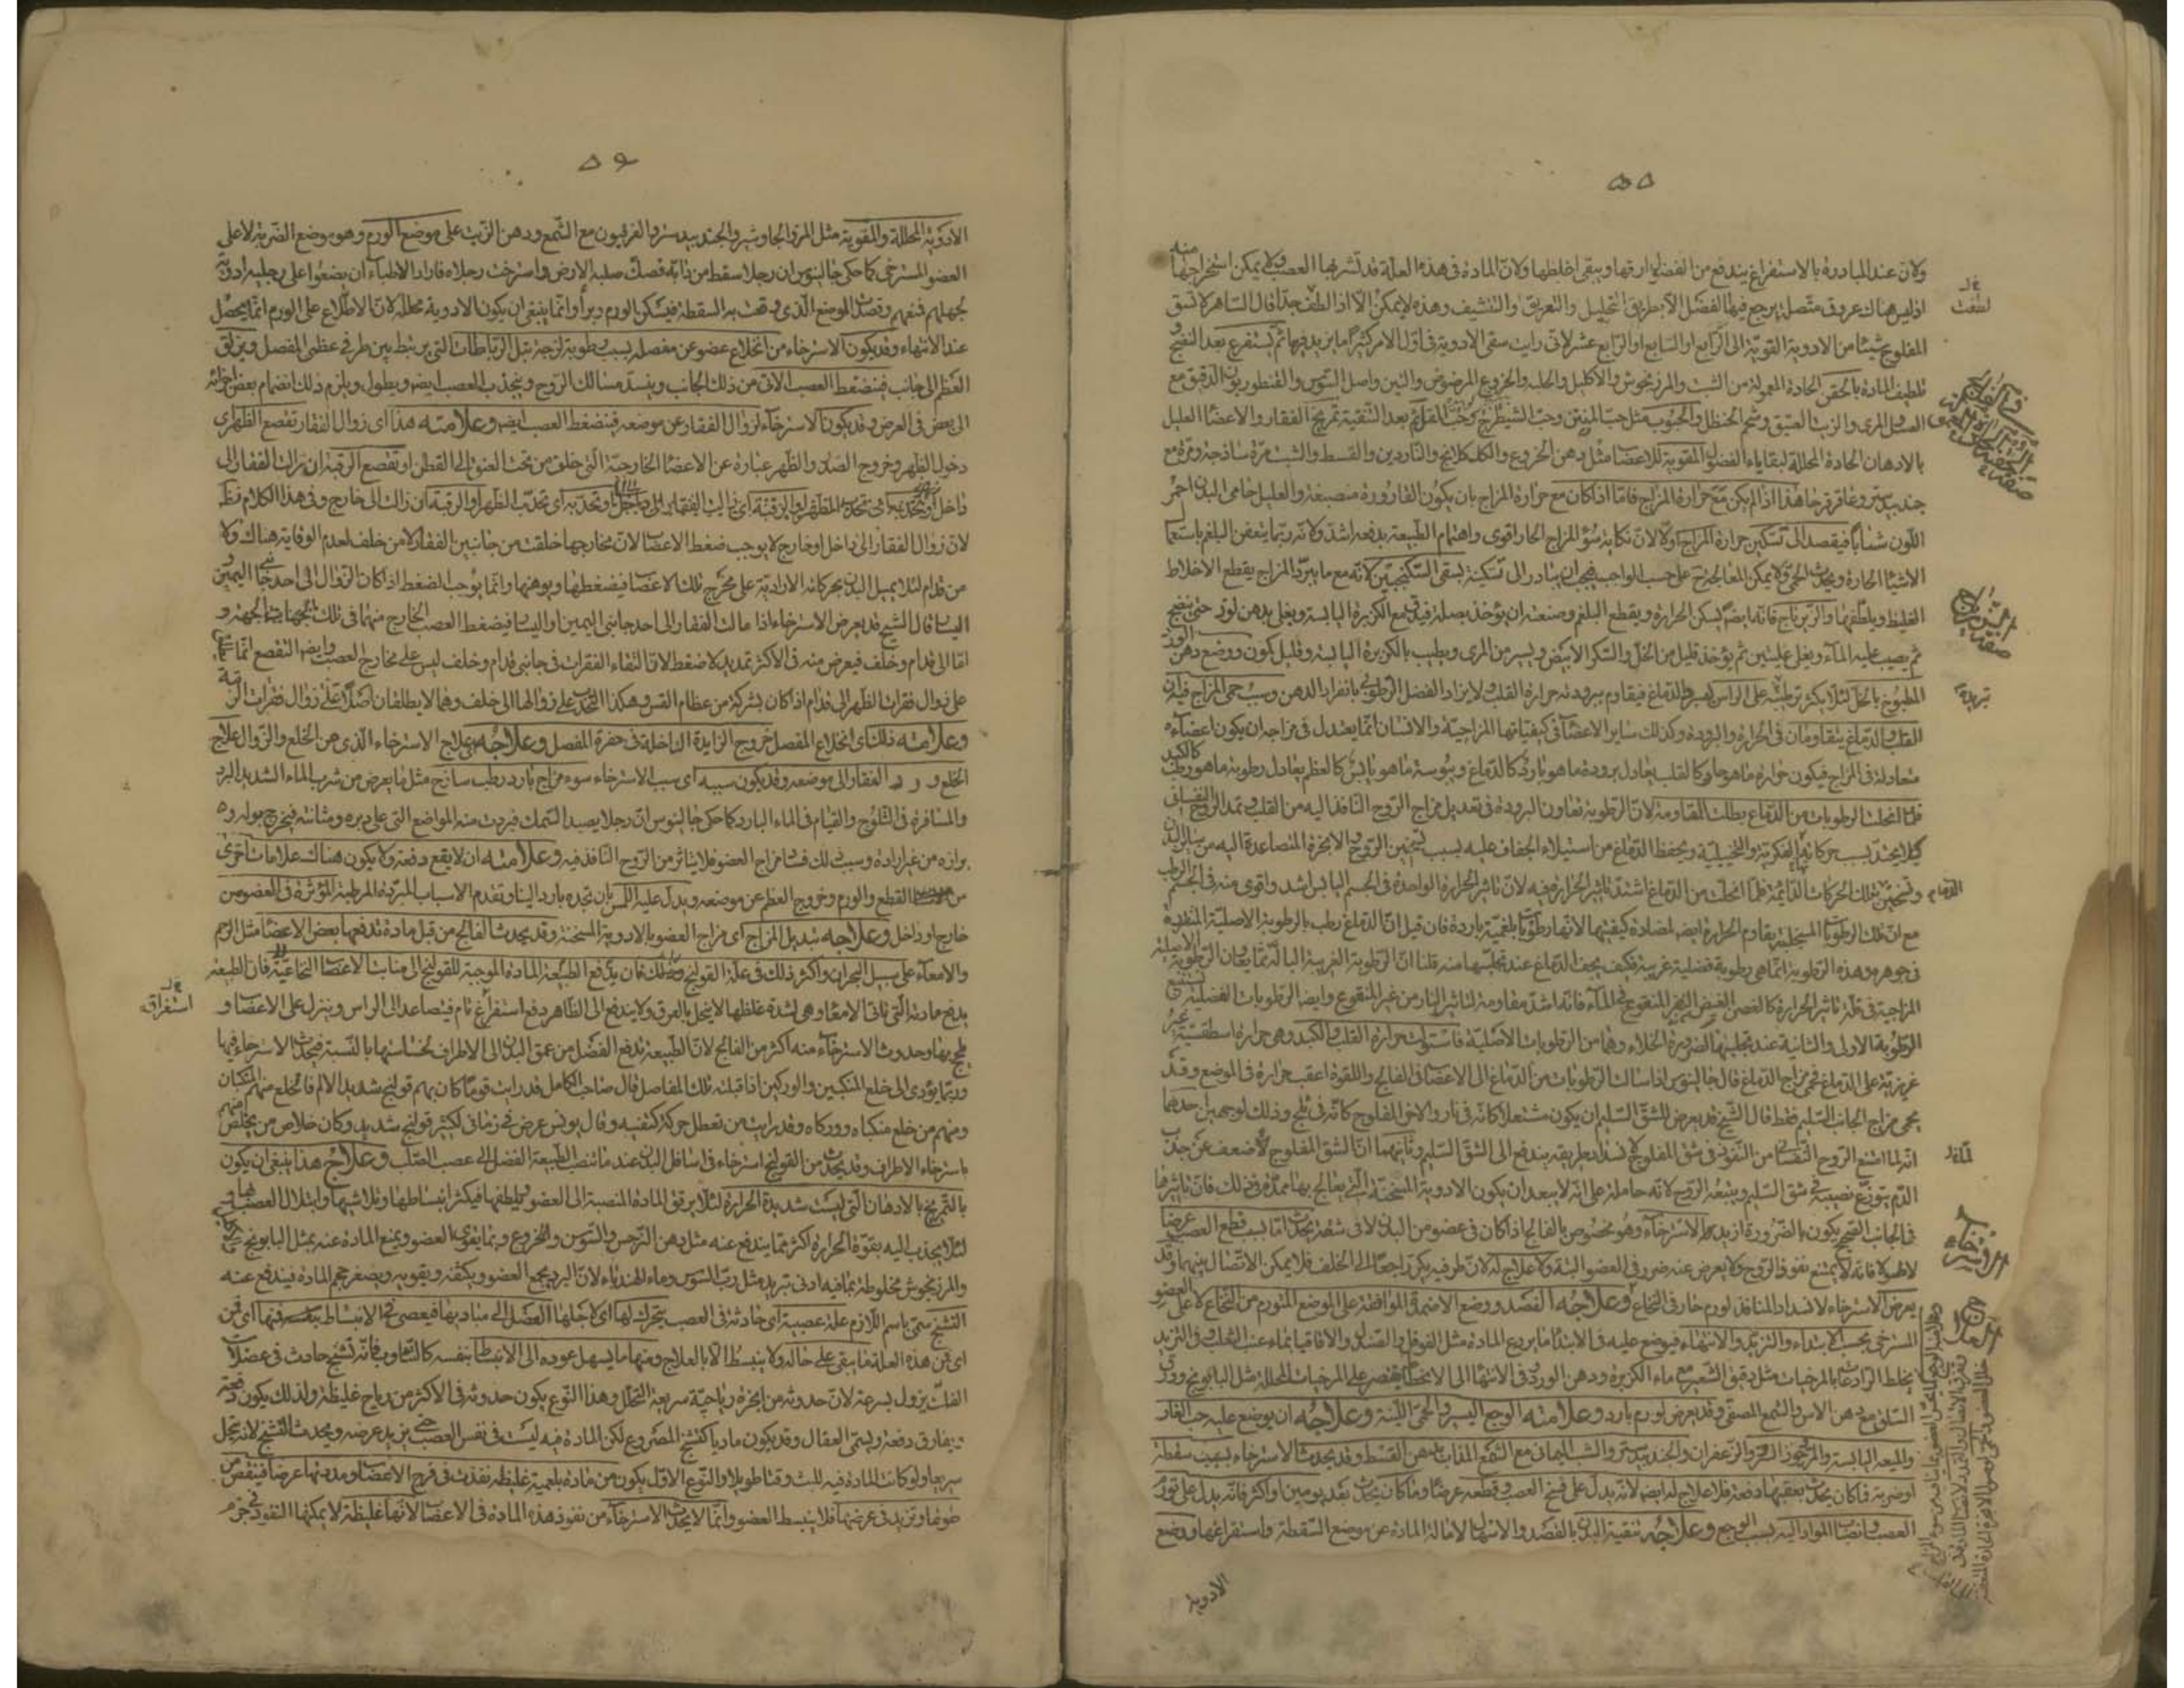 ٥٥
ولان عند المبادرة بالاستفراغ يندفع من الفضلة ارقها ويبقى اغلظها ولان المادة فى هذه العلة قد تشربها العصب ولا يمكن استخراجها منه
اذ ليس هناك عروق متصل يرجع فيها الفضل الا بطريق التحليل والتعريق والتنشيف وهذه لا يمكن الا اذا لطف جدا قال الساهر لا تسق
المفلوج شيئا من الادوية القوية الى الرابع او السابع او الرابع عشر لانى رايت سقى الادوية فى اول الامر كثيرا ما يزيد فيها ثم يستفرغ بعد النضج و
تلطيف المادة بالحقن الحادة المعمولة من الشبث والمرزنجوش والاكليل والحلبة والخروع المرضوض والتين واصل السوس والقنطوريون الدقيق مع
العسل والمرى والزيت العتيق وشحم الحنظل والحبوب مثل حب المنتن وحب الشيطرج وحب بعد التنقية تمريخ الفقار والاعضاء العليل
بالادهان الحادة المحللة لبقايا الفضول المقوية للاعصاب مثل دهن الخروع والكلكلانج والناردين والقسط والشبث مرة ساذجة ومرة مع
جندبيدستر وعاقرقرحا هذا اذا لم يكن معه حرارة المزاج فاما اذا كان مع حرارة المزاج بان يكون القارورة منصبغة والعليل حامى البدن احمر
اللون شابا فيقصد الى تسكين حرارة المزاج اولا لان نكاية سوء المزاج الحار اقوى واهتمام الطبيعة بدفعه اشد ولانه ربما يتعفن البلغم باستعما
الاشياء الحارة ويحدث الحمى ولا يمكن المعالجة على حسب الواجب فيجب ان يبادر الى تسكينه بسقى السكنجبين لانه مع ما يبرد المزاج يقطع الاخلاط
الغليظة ويلطفها والزيرباج فانه ايضا يسكن الحرارة ويقطع البلغم وصنعته ان يؤخذ بصلة فيدق مع الكزبرة اليابسة ويغلى بدهن لوز حتى ينضج
ثم يصب عليه الماء ويغلى غليتين ثم يؤخذ قليل من الخل والسكر الابيض ويسير من المرى ويطيب بالكزبرة اليابسة وقليل كمون ووضع دهن الورد
المطبوخ بالخل لئلا يكثر ترطيبه على الراس لتبريد الدماغ فيقاوم ببرودته حرارة القلب ولا يزاد الفضل الرطوبى بانفراد الدهن وسبب حمى المزاج فيه ان
القلب والدماغ يتقاومان فى الحرارة والبرودة وكذلك ساير الاعضاء فى كيفياتها المزاجية والانسان انما يعتدل فى مزاجه ان يكون اعضاءه
متعادلة فى المزاج فيكون حرارة ما هو حار كالقلب يعادل برودة ما هو بارد كالدماغ ويبوسة ما هو يابس كالعظم يعادل رطوبة ما هو رطب كالكبد
فلما انحلت الرطوبات من الدماغ بطلت المقاومة لان الرطوبة تعاون البرودة فى تعديل مزاج الروح النافذ اليه من القلب
كيلا يحتد بسبب حركاته الفكرية والتخيلية ويحفظ الدماغ من استيلاء الجفاف عليه بسبب تسخين الروح والابخرة المتصاعدة اليه من ساير البدن
وتسخين تلك الحركات الدائمة فلما انحلت من الدماغ اشتد تاثير الحرارة فيه لان تاثير الحرارة الواحدة فى الجسم اليابس اشد واقوى منه فى الجسم الرطب
مع ان تلك الرطوبات المتحللة يقاوم الحرارة ايضا لمضادة كيفيتها لانها رطوبات بلغمية باردة فان قيل ان الدماغ رطب بالرطوبة الاصلية المنفردة
فى جوهره وهذه الرطوبة انما هى رطوبة فضلية غريبة فكيف يجف الدماغ عند تحللها منه قلنا ان الرطوبة الغريبة البالة مما يعاون الرطوبة الاصلية
المزاجية فى قلة تاثير الحرارة كالغصن الغض المنقوع فى الماء فانه اشد مقاومة لتاثير النار من غير المنقوع وايضا الرطوبات الفضلية
الرطوبة الاولى والثانية عند تحللها لضرورة الخلاء وهما من الرطوبات الاصلية فاستولت حرارة القلب والكبد وهى حرارة اسطقسية غير
غريزية على الدماغ فحمى مزاج الدماغ قال جالينوس اذا سالت الرطوبات من الدماغ الى الاعصاب فى الفالج واللقوة اعقب حرارة فى الموضع وقد
يحمى مزاج الجانب السليم فقط قال الشيخ قد يعرض للشق السليم ان يكون مشتعلا كانه فى نار والاخر المفلوج كانه فى ثلج وذلك لوجهين احدهما
انه لما امتنع الروح النفسانى من النفوذ فى شق المفلوج لانسداد طريقه يندفع الى الشق السليم وثانيهما ان الشق المفلوج لضعفه عن جذب
الدم يتوزع نصيبه فى شق السليم ويتبعه الروح لانه حاملة على انه لا يبعد ان يكون الادوية المسخنة التى يعالج بها ممدة فى ذلك فان تاثيرها
فى الجانب الصحيح يكون بالضرورة ازيد الاسترخاء وهو مخصوص بالفالج اذا كان فى عضو من البدن لا فى شقه يحدث اما بسبب قطع العصب عرضا
لا طولا فانه لا يمنع نفوذ الروح ولا يعرض عنه ضرر فى العضو البتة ولا علاج له لان طرفيه يكر راجعا الى الخلف فلا يمكن الاتصال بينهما وقد
يعرض الاسترخاء لانسداد المنافذ لورم حار فى النخاع وعلاجه الفصد ووضع الاضمدة الموافقة على الموضع المتورم من النخاع لا على العضو
المسترخى بحسب الابتداء والتزيد والانتهاء فيوضع عليه فى الابتداء ما يردع المادة مثل الفوفل والصندل والاقاقيا بماء عنب الثعلب وفى التزيد
يخلط الرادعات بالمرخيات مثل دقيق الشعير مع ماء الكزبرة ودهن الورد وفى الانتهاء الى الانحطاط يقتصر على المرخيات المحللة مثل البابونج وورق
السلق مع دهن الاس والشمع المصفى وقد يعرض لورم بارد وعلامته الوجع اليسير والحمى اللينة وعلاجه ان يوضع عليه حب الغار
والميعة اليابسة والمر والزعفران والجندبيدستر والشب اليمانى مع الشمع المذاب بدهن القسط وقد يحدث الاسترخاء بسبب سقطة
او ضربة فما كان يحدث بعقبها دفعة فلا علاج له ايضا لانه يدل على فسخ العصب وقطعه عرضا وما كان يحدث بعد يومين او اكثر فانه يدل على تورم
العصب وانصباب المواد اليه بسبب الوجع وعلاجه تنقية البدن بالفصد والاسهال لامالة المادة عن موضع السقطة واستفراغها ووضع
الادوية
الاسترخاء
العلاج
٥٦
الادوية المحللة والمقوية مثل المر والجاوشير والجندبيدستر والفرفيون مع الشمع ودهن الزيت على موضع الورم وهو موضع الضربة لا على
العضو المسترخى كما حكى جالينوس ان رجلا سقط من دابة فصك صلبه الارض واسترخت رجلاه فاراد الاطباء ان يضعوا على رجليه ادوية
لجهلهم فمنعهم وقصدت الموضع الذى وقعت به السقطة فسكن الورم وبرأ وانما ينبغى ان يكون الادوية محللة لان الاطلاع على الورم انما يحصل
عند الانتهاء وقد يكون الاسترخاء من انخلاع عضو عن مفصله بسبب رطوبة لزجة تبل الرباطات التى يرتبط بين طرفى عظمى المفصل ويزلق
العظم الى جانب فينضغط العصب الاتى من ذلك الجانب وينسد مسالك الروح وينجذب العصب ايضا ويطول ويلزم ذلك انضمام بعض اجزائه
الى بعض فى العرض وقد يكون الاسترخاء لزوال الفقار عن موضعه فينضغط العصب ايضا وعلامته هذا اى زوال الفقار تقصع الظهر اى
دخول الظهر وخروج الصدر والظهر عبارة عن الاعضاء الخارجية التى خلق من تحت العنق الى القطن او تقصع الرقبة ان زالت الفقار الى
داخل
لان زوال الفقار الى داخل او خارج لا يوجب ضغط الاعصاب لان مخارجها خلقت من جانبين الفقار لا من خلف لعدم الوقاية هناك ولا
من قدام لئلا يميل البدن بحركاته الارادية على مخرج تلك الاعصاب فيضغطها ويوهنها وانما يوجب الضغط اذا كان الزوال الى احد جانبى اليمين و
اليسار قال الشيخ قد يعرض الاسترخاء اذا مالت الفقار الى احد جانبى اليمين واليسار فيضغط العصب الخارج منهما فى تلك الجهة و
اما الى قدام وخلف فيعرض منه فى الاكثر تمديد لا ضغط لان التقاء الفقرات فى جانبى قدام وخلف ليس على مخارج العصب وايضا التقصع انما
على زوال فقرات الظهر الى قدام اذا كان بشركة من عظام القس وهكذا التحدب على زوالها الى خلف وهما لا يطلقان اصلا على زوال فقرات الرقبة
وعلامته ذلك اى انخلاع المفصل خروج الزايدة الداخلة فى حفرة المفصل وعلاجه علاج الاسترخاء الذى عن الخلع والزوال علاج
الخلع ورد الفقار الى موضعه وقد يكون سببه اى سبب الاسترخاء سوء مزاج بارد رطب ساذج مثل ما يعرض من شرب الماء الشديد البرد
والمسافرة فى الثلوج والقيام فى الماء البارد كما حكى جالينوس ان رجلا يصيد السمك فبردت منه المواضع التى على دبره ومثانته فيخرج بوله و
برازه من غير ارادة وسبب ذلك فساد مزاج العضو فلا يتاثر من الروح النافذ فيه وعلامته ان لا يقع دفعة ولا يكون هناك علامات اخرى
من القطع والورم وخروج العظم عن موضعه ويدل عليه اللمس بان تجده باردا لينا وتقدم الاسباب المبردة المرطبة المؤثرة فى العضو من
خارج او داخل وعلاجه تبديل المزاج اى مزاج العضو بالادوية المسخنة وقد يحدث الفالج من قبل مادة تدفعها بعض الاعضاء مثل الرحم
والامعاء على سبيل البحران واكثر ذلك فى علة القولنج وذلك بان يدفع الطبيعة المادة الموجبة للقولنج الى منابت الاعصاب النخاعية فان الطبيعة
يدفع مادته التى تاتى الامعاء وهى لشدة غلظها لا ينحل بالعرق ولا يندفع الى الظاهر دفع استفراغ تام فيتصاعد الى الراس وينزل على الاعصاب و
يلحج بها وحدوث الاسترخاء منه اكثر من الفالج لان الطبيعة تدفع الفضل من عمق البدن الى الاطراف لخساستها بالنسبة فيحدث الاسترخاء فيها
وربما يؤدى الى خلع المنكبين والوركين اذا قبلته تلك المفاصل قال صاحب الكامل قد رايت قوما كان بهم قولنج شديد الالم فانخلع منهم المنكبان
ومنهم من خلع منكباه ووركاه وقد رايت من تعطل حركة كتفيه وقال بولس عرض فى زمانى لكثير قولنج شديد وكان خلاص من يخلص منهم
باسترخاء الاطراف وقد يحدث من القولنج استرخاء فى اسافل البدن عند ما تنصب الطبيعة الفضل الى عصب الصلب وعلاج هذا ينبغى ان يكون
بالتمريخ بالادهان التى ليست شديدة الحرارة لئلا يرقق المادة المنصبة الى العضو ويلطفها فيكثر انبساطها وتلاشيها وابتلال العصب بها و
لئلا يجذب اليه بقوة الحرارة اكثر مما يندفع عنه مثل دهن النرجس والسوسن والخروع وبما يقوى العضو ويمنع المادة عنه بمثل البابونج
والمرزنجوش مخلوطة بما فيه ادنى تبريد مثل رب السوس وماء الهندباء لان البرد يجمع العضو ويكثفه ويقويه ويصغر حجم المادة فيندفع عنه
التشنج سمى باسم اللازم علة عصبية اى حادثة فى العصب يتحرك لها اى لاجلها العضل الى مباديها فيعصى فى الانبساط فمنها اى من
اى من هذه العلة ما يبقى على حاله ولا ينبسط الا بالعلاج ومنها ما يسهل عوده الى الانبساط بنفسه كالتثاوب فانه تشنج حادث فى عضلات
الفك يزول بسرعة لان حدوثه من ابخرة رياحية سريعة التحلل وهذا النوع يكون حدوثه فى الاكثر من رياح غليظة ولذلك يكون دفعة
ويفارق دفعة ويسمى العقال وقد يكون ماديا كتشنج المصروع لكن المادة فيه ليست فى نفس العصب حتى يزيد عرضه ويحدث التشنج لانه يتحلل
سريعا ولو كانت المادة فيه للبث وقتا طويلا والنوع الاول يكون من مادة بلغمية غليظة نفذت فى فرج الاعصاب ومددتها عرضا فينقص من
طولها وتزيد فى عرضها فلا ينبسط العضو وانما لا يحدث الاسترخاء من نفوذ هذه المادة فى الاعصاب لانها غليظة لا يمكنها النفوذ فى جرم
استفراق